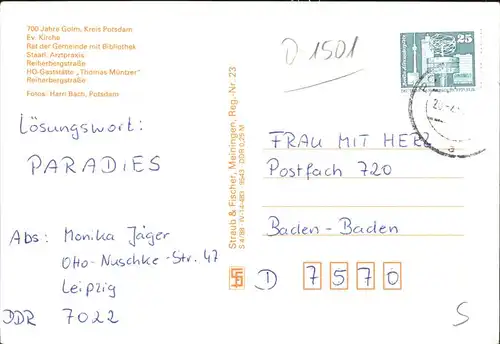 700 Jahre Golm, Kreis Potsdam
Ev. Kirche
Rat der Gemeinde mit Bibliothek
Staatl. Arztpraxis
Reiherbergstraße
HO-Gaststätte „Thomas Müntzer"
Reiherbergstraße
Fotos: Harri Bach, Potsdam
Lösungswort:
PARADIES
Abs: Monika Jäger
Otto-Nuschke-Str. 47
Leipzig
DDR 7022
Straub & Fischer, Meiningen, Reg.-Nr. 23
S 4/89 IV-14-483 9543 DDR 0,25 M
D 1501
25
FRAU MIT HERZ
Postfach 720
Baden-Baden
D 7570
S